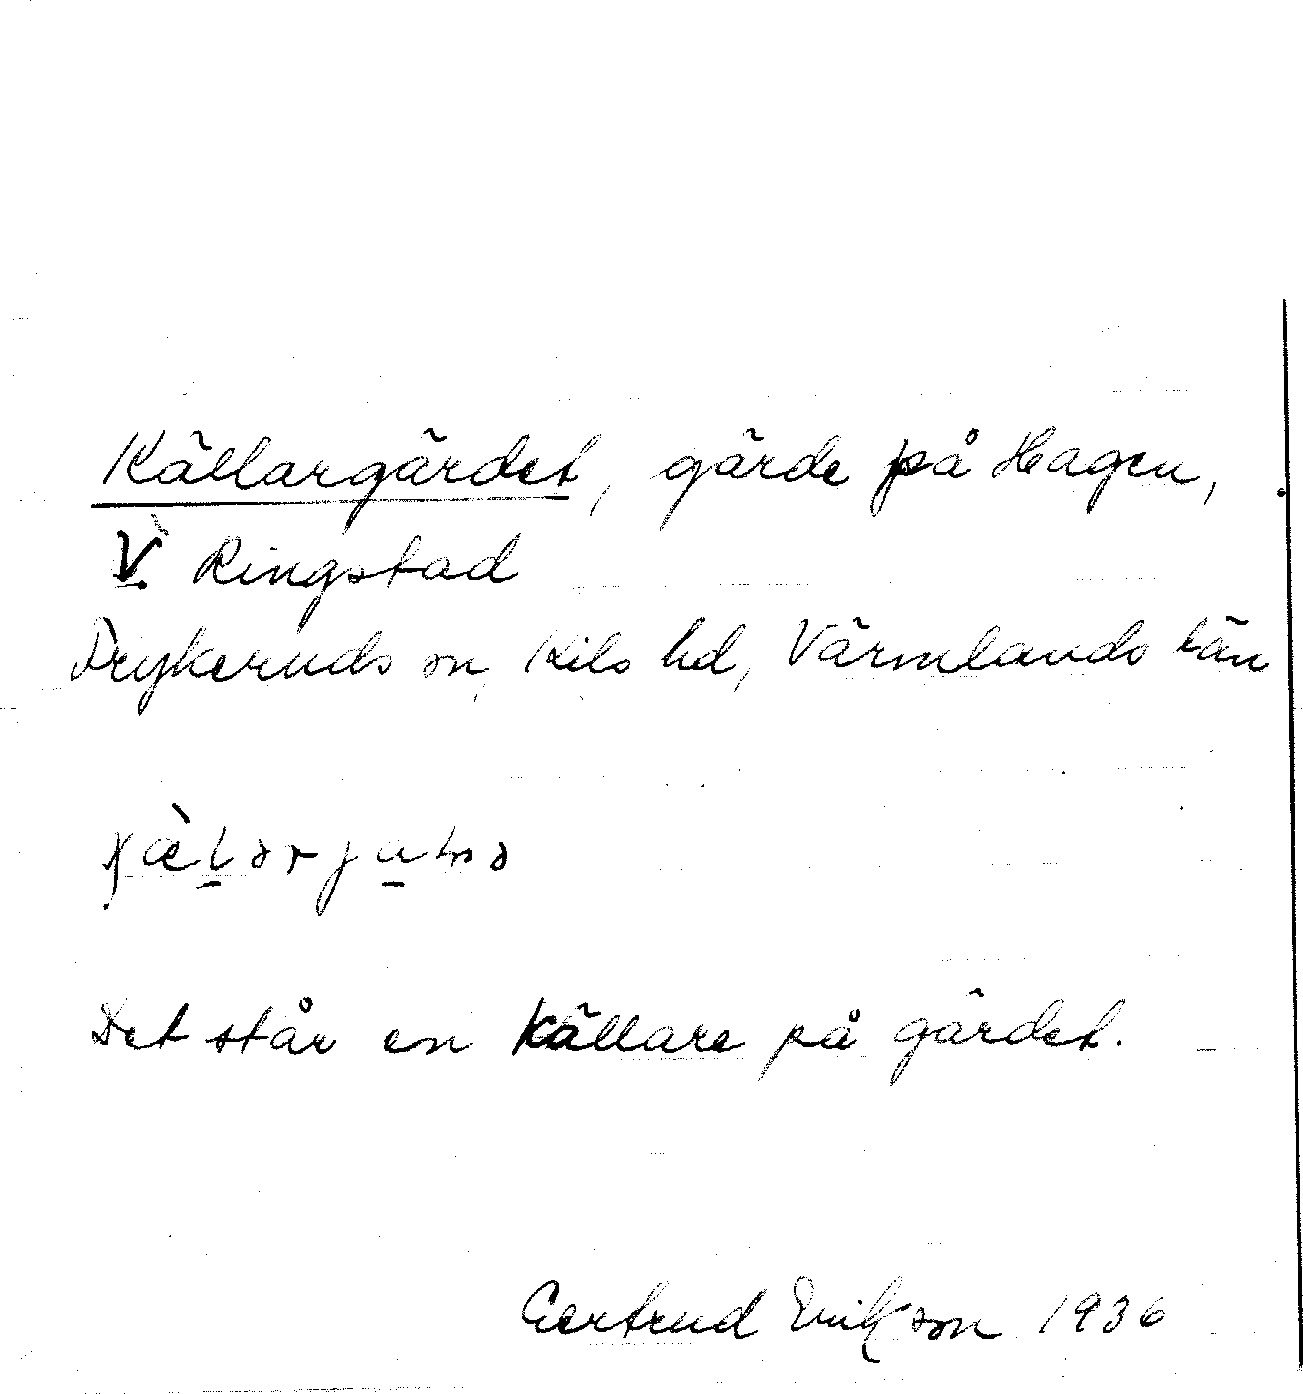 Källargärdet, gärde på Hagen,
V. Ringstad
Frykeruds sn, Kils hd, Värmlands län
Det står en källare på gärdet.
Gertrud Erikson 1936